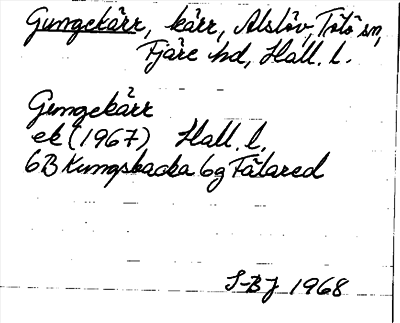 Gungekärr, kärr, Alslöv, Tölö sn,
Fjäre hd, Hall. l.
Gungekärr
ek (1967) Hall. l.
6B Kungsbacka 6g Fälared
S-BJ 1968